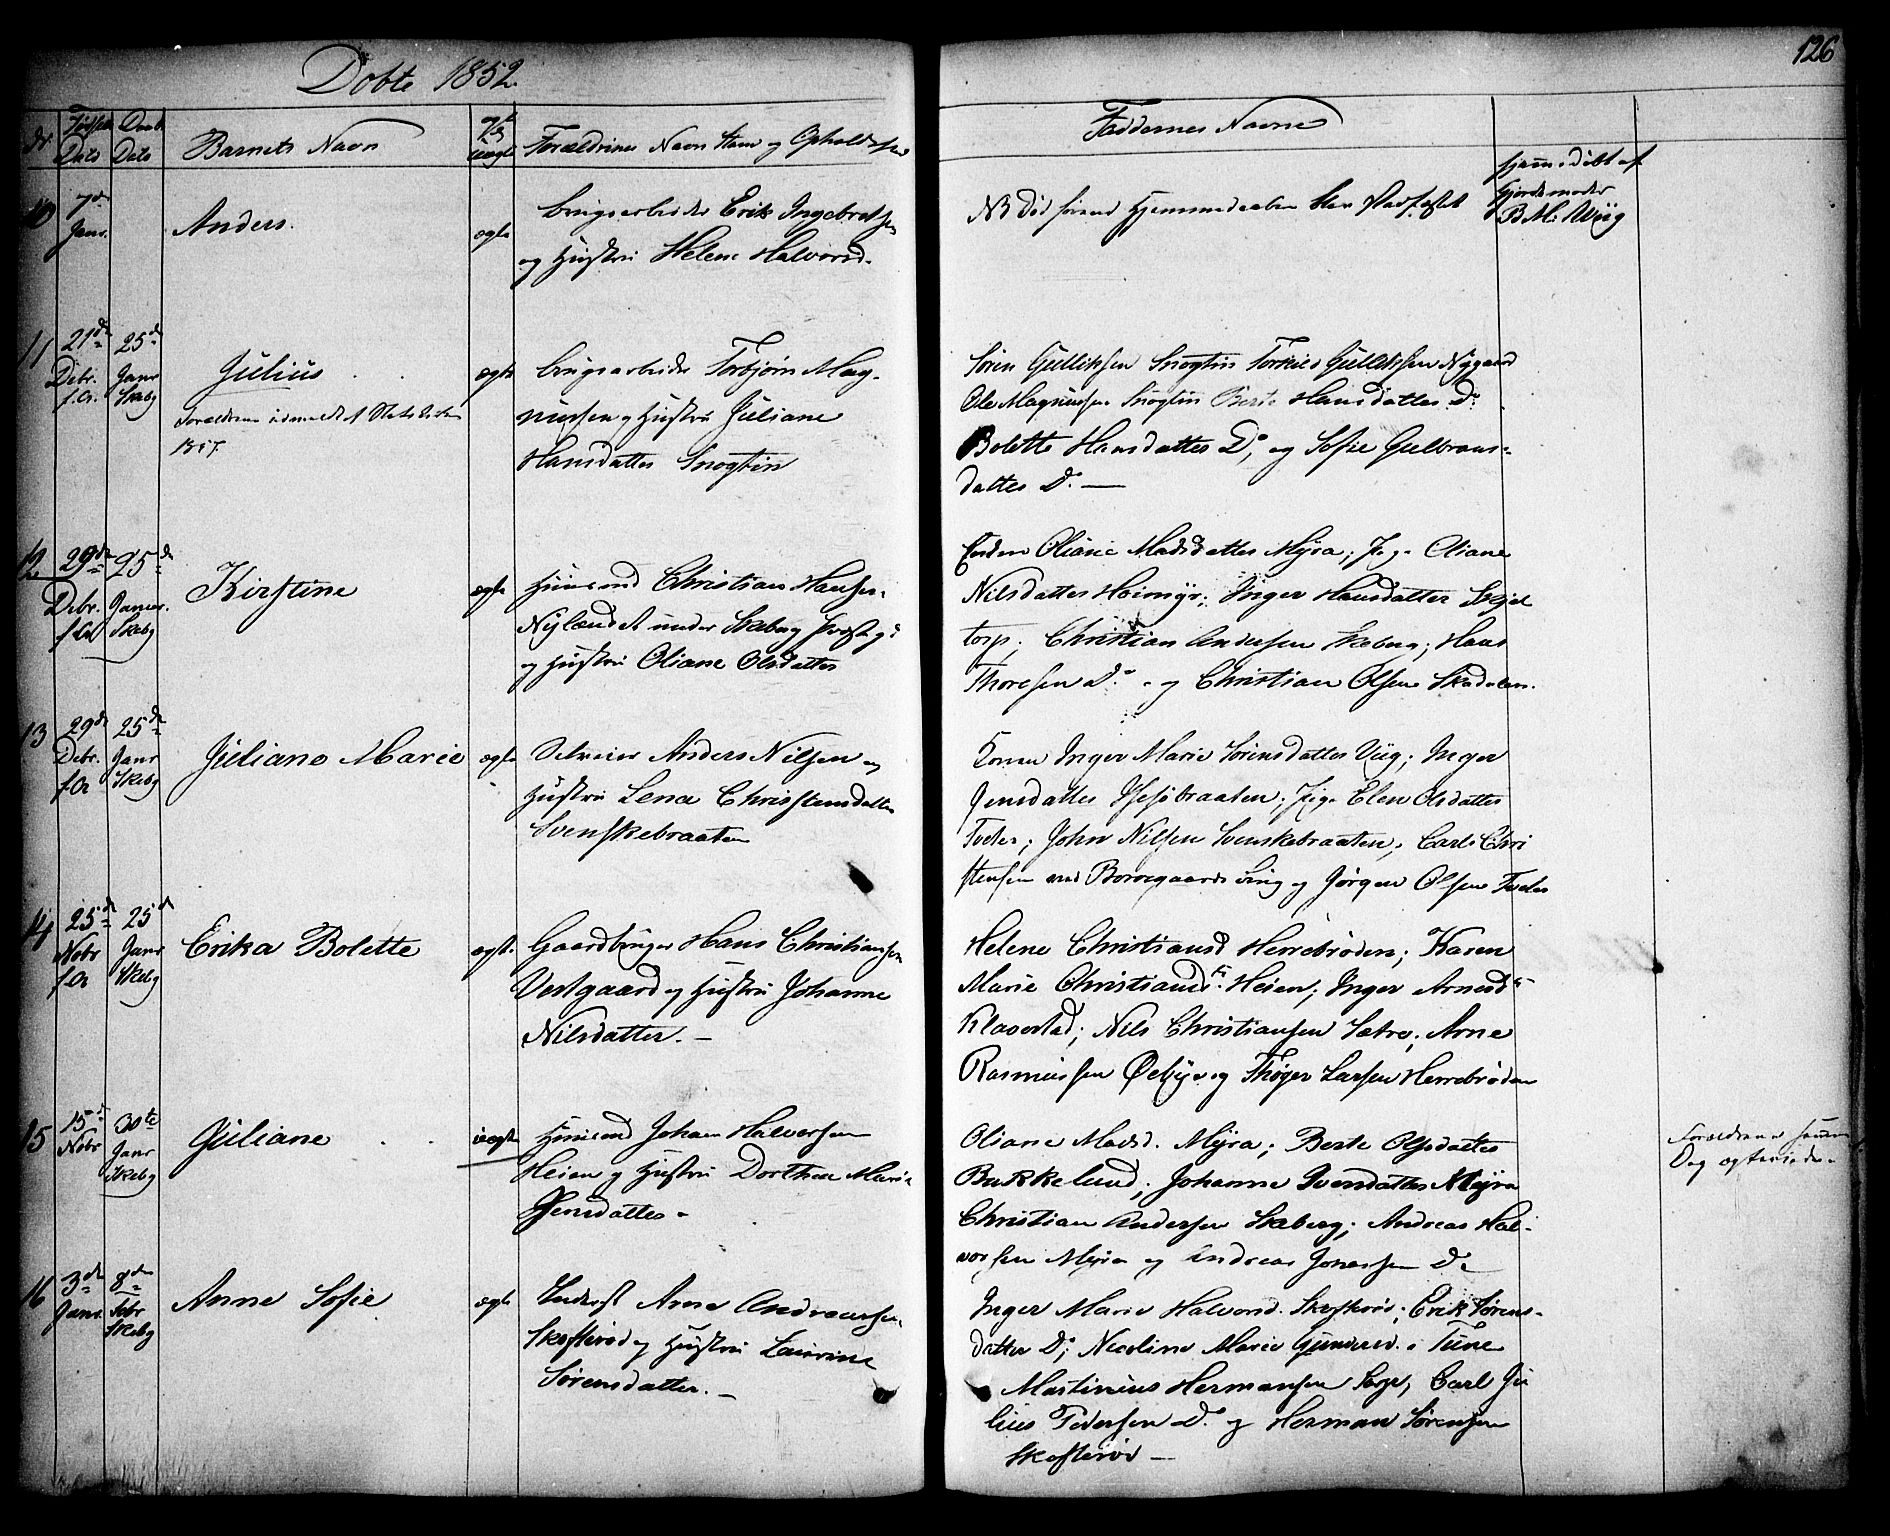 126
Døbte 1852.
Nr Fødsels Dato Daab Dato Barnets Navn Ægte uægte Forældrenes Navn Stand og Opholdssted
Faddernes Navne
10 7de Janr. Anders. ægte brugsarbeider Erik Ingebretsen
og Hustru Helene Halvorsd.
NB Død forend Hjemmedaaben blev stadfæstet
hjemmedøbt af
Gjordemoder
B. M. Wiig
11 21de Debr. f.A. 25de Janr Skeby Julius ægte brugsarbeider Torbjørn Mag-
nussen og Hustru Juliane
Hansdatter Snogtin
Forældrene udmeldt af Statskirken
1857.
Søren Gulliksen Snogtin Torkies Gulliksen Nygaard
Ole Magnussen Snogtin Berte Hansdatter Do
Bolette Hansdatter Do, og Sofie Gulbrans-
datter Do. —
12 29de Debr. f.A. 25de Januar. Skeby Kirstine ægte Huusmand Christian Hansen
Nylændet under Skeberg
og Hustru Oliane Olsdatter
Enken Oliane Madsdatter Myra; Pige Oliane
Nilsdatter Heimyr; Inger Hansdatter Skjel
torp; Christian Andersen Skeberg; Hans
Thoresen Do. og Christian Olsen Skadalen.
13 29de Debr. f.A 25de Janr Skeby Juliane Marie ægte Selveier Anders Nilsen og
Hustru Lena Christensdatter
Svenskebraaten
Konen Inger Marie Sørensdatter Viig; Inger
Jensdatter Pige Elen Olsdatter
Tveter; John Nilsen Svenskebraaten; Carl Chri
stensen ved Borregaards Brug og Jørgen Olsen Tveter
14 25de Nobr f.A 25de Janr Skeby Erika Bolette ægte. Gaardbruger Hans Christiansen
Vestgaard og Hustru Johanne
Nilsdatter. —
Helene Christiansd Herrebrøden; Karen
Marie Christiansdtr. Heien; Inger Arnesdtr
Klavestad; Nils Christiansen Sætre; Arne
Rasmussen Øeby og Thøger Larsen Herrebrøden
15 15de Nobr 30te Janr Skeby Juliane uægte Huusmand Johan Halvorsen
Heien og Hustru Dorthea Marie
Jensdatter.
Oliane Madsd. Myra; Berte Olsdatter
Burkelund; Johanne Svendatter Myra
Christian Andersen Skeberg; Andreas Hal-
vorsen Myra og Andreas Jonassen Do
Forældrene samme
Dag ægteviede.
16 3de Janr. 8de Febr Skeby Anne Sofie ægte Inderst Arne Andreassen
Skofterød og Hustru Laurine
Sørensdatter. —
Inger Marie Halvorsd. Skofterød; Erik Sørens-
datter Do; Nicoline Marie Gundersd. i Tune
Martinius Hermansen Carl Ju
lius Pedersen Do. og Herman Sørensen
Skofterød —